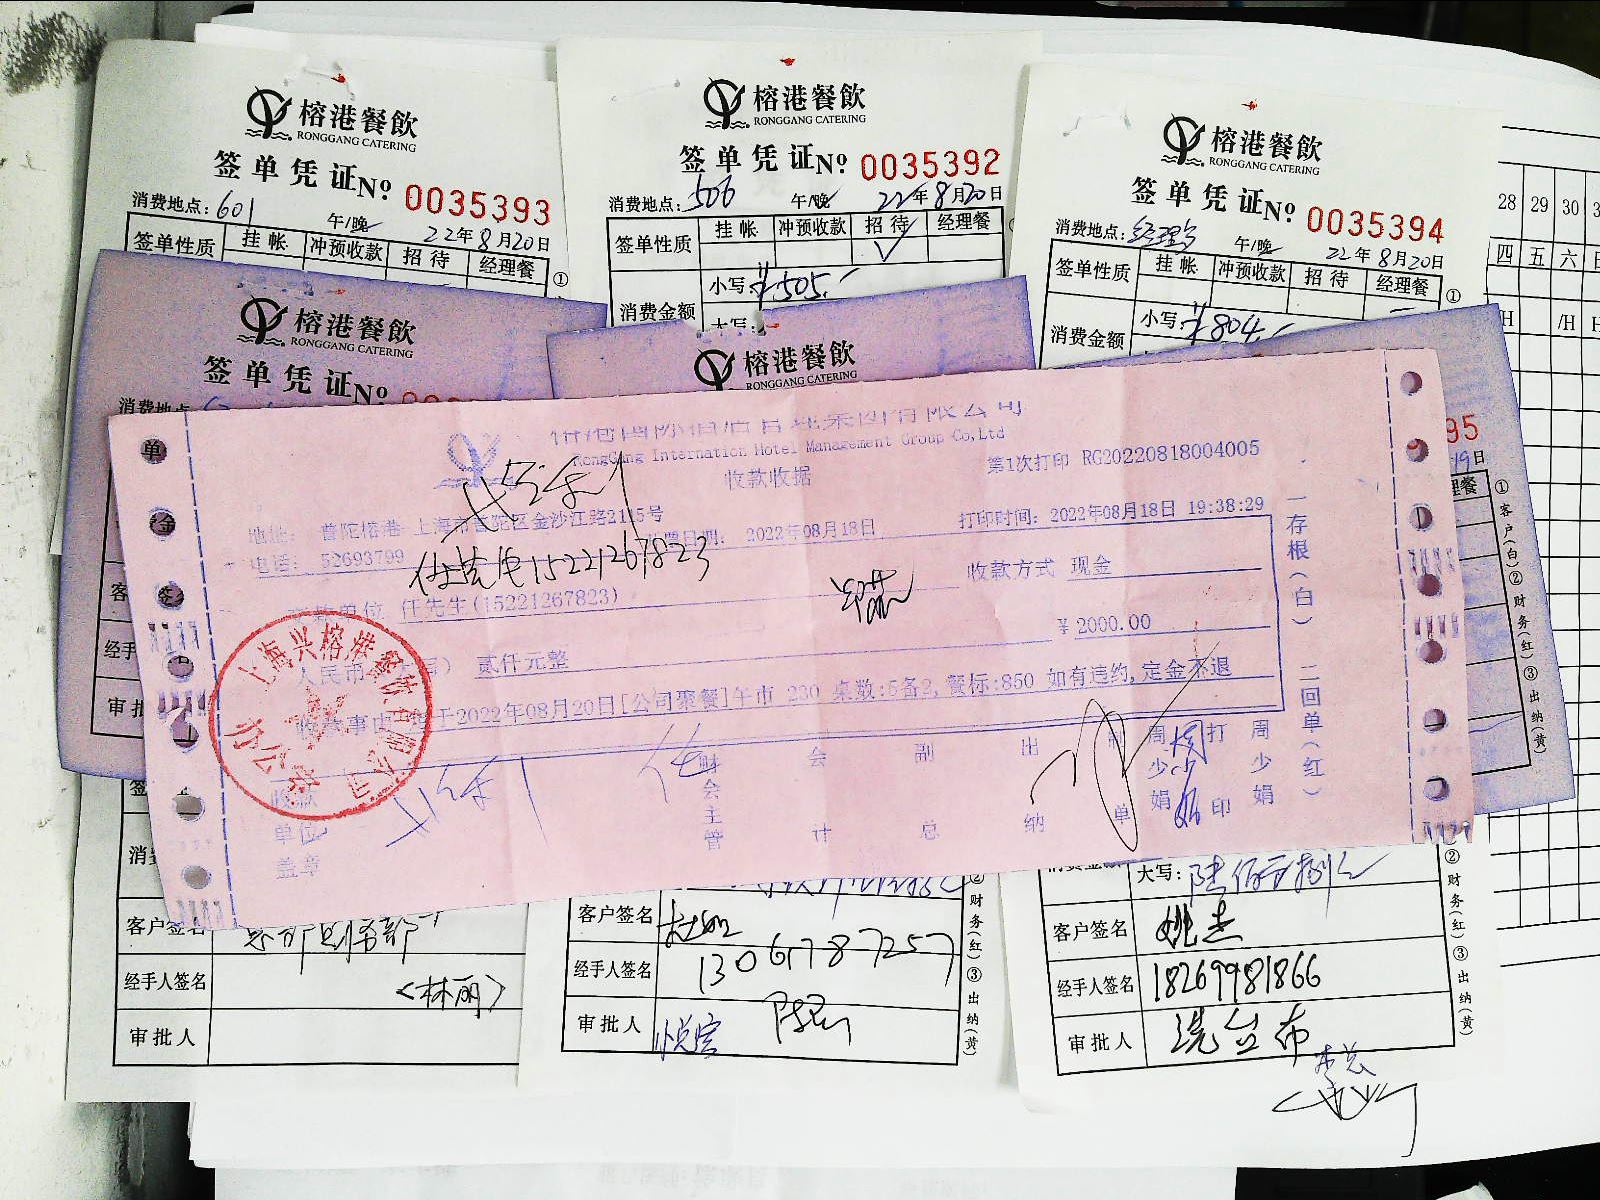 榕港餐飲
RONGGANG CATERING
签单凭证No 0035393
消费地点:601 午/晚 22年8月20日
签单性质 挂帐 冲预收款 招待 经理餐
①
榕港餐飲
RONGGANG CATERING
签单凭证No 0035392
消费地点:506 午/晚 22年8月20日
签单性质 挂帐 冲预收款 招待 经理餐
√
消费金额 小写:¥505.-
大写:
榕港餐飲
RONGGANG CATERING
签单凭证No 0035394
消费地点:经理 午/晚 22年8月20日
签单性质 挂帐 冲预收款 招待 经理餐
①
消费金额 小写:¥804.-
28 29 30
四 五 六
/H
榕港餐飲
RONGGANG CATERING
签单凭证No
消费地点
榕港餐飲
RONGGANG CATERING
95
19日
理餐
①客户(白)②财务(红)③出纳(黄)
经手
审批
榕港国际酒店管理集团有限公司
RongGang Internation Hotel Management Group Co,Ltd
收款收据
第1次打印 RG20220818004005
地址: 普陀榕港 上海市普陀区金沙江路2145号
日期: 2022年08月18日
打印时间: 2022年08月18日 19:38:29
电话: 52693799
15221267823
收款方式 现金
单位 任先生(15221267823)
人民币 写) 贰仟元整
¥ 2000.00
收款事由 于2022年08月20日[公司聚餐]午市 230 桌数:5备2,餐标:850 如有违约,定金不退
收款单位盖章
财会主管
会计
副总
出纳
制单 周少娟
打印 周少娟
一存根(白) 二回单(红)
上海兴榕港餐饮有限公司
办公室
消费
客户签名 总部财务部
经手人签名 <林丽>
审批人
客户签名
经手人签名 13061787257
审批人
②财务(红)③出纳(黄)
消费金额 大写:
客户签名 姚杰
经手人签名 18269981866
审批人 洗台布
李总
②财务(红)③出纳(黄)